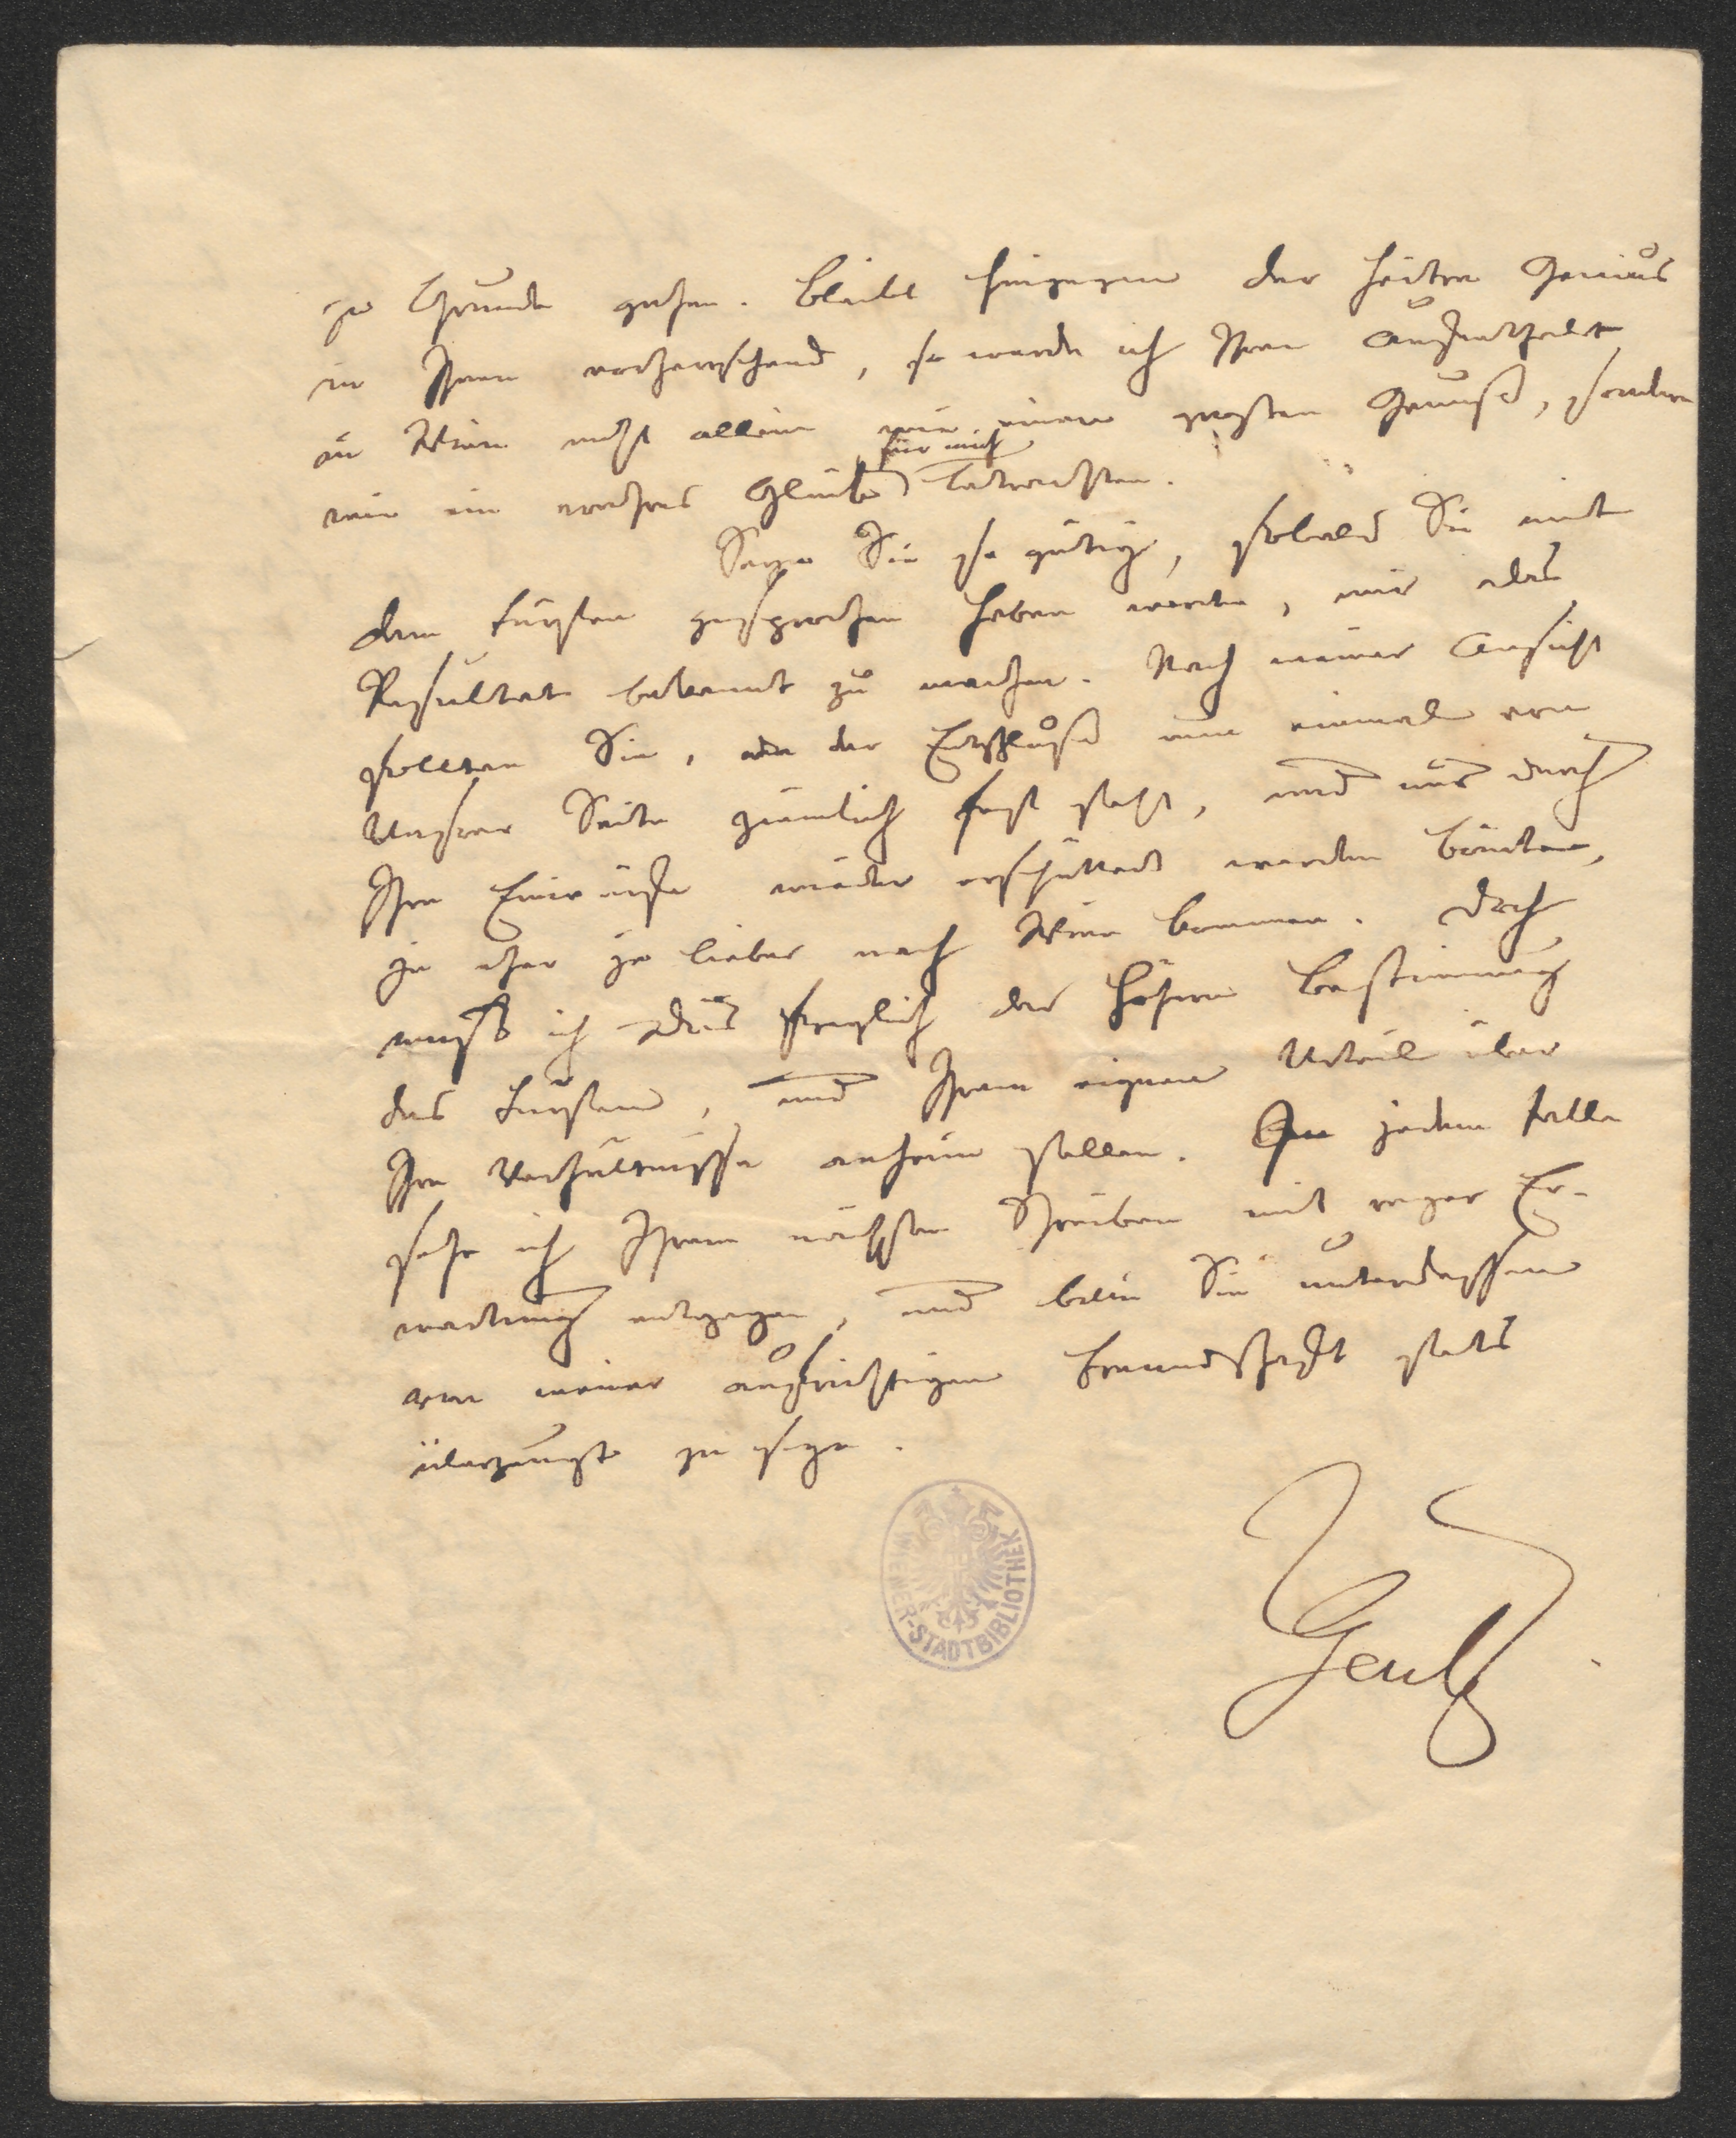 zu Grunde gehen. Bleibt hingegen der heitre Genius
in Ihnen vorherrschend, so werde ich Ihren Aufenthalt
in Wien nicht allein wie einen großen Genuß, sondern
für mich
wie ein wahres Glück betrachten.
Seyn Sie so gütig, sobald Sie mit
dem Fürsten gesprochen haben werden, mir das
Resultat bekannt zu machen. Nach meiner Ansicht
sollten Sie, da der Entschluß nun einmal von
Unsrer Seite ziemlich fest steht, und nur durch
Ihre Einwürfe wieder erschüttert werden könnte,
je eher je lieber nach Wien kommen. Doch
muß ich dies freylich der höhern Bestimmung
des Fürsten, und Ihrem eignen Urteil über
Ihre Verhältnisse anheim stellen. In jedem Falle
sehe ich Ihrem nächsten Schreiben mit reger Er-
wartung entgegen, und bitte Sie unterdessen
von meiner aufrichtigen Freundschaft stets
überzeugt zu seyn.
Gentz
WIENER-STADTBIBLIOTHEK